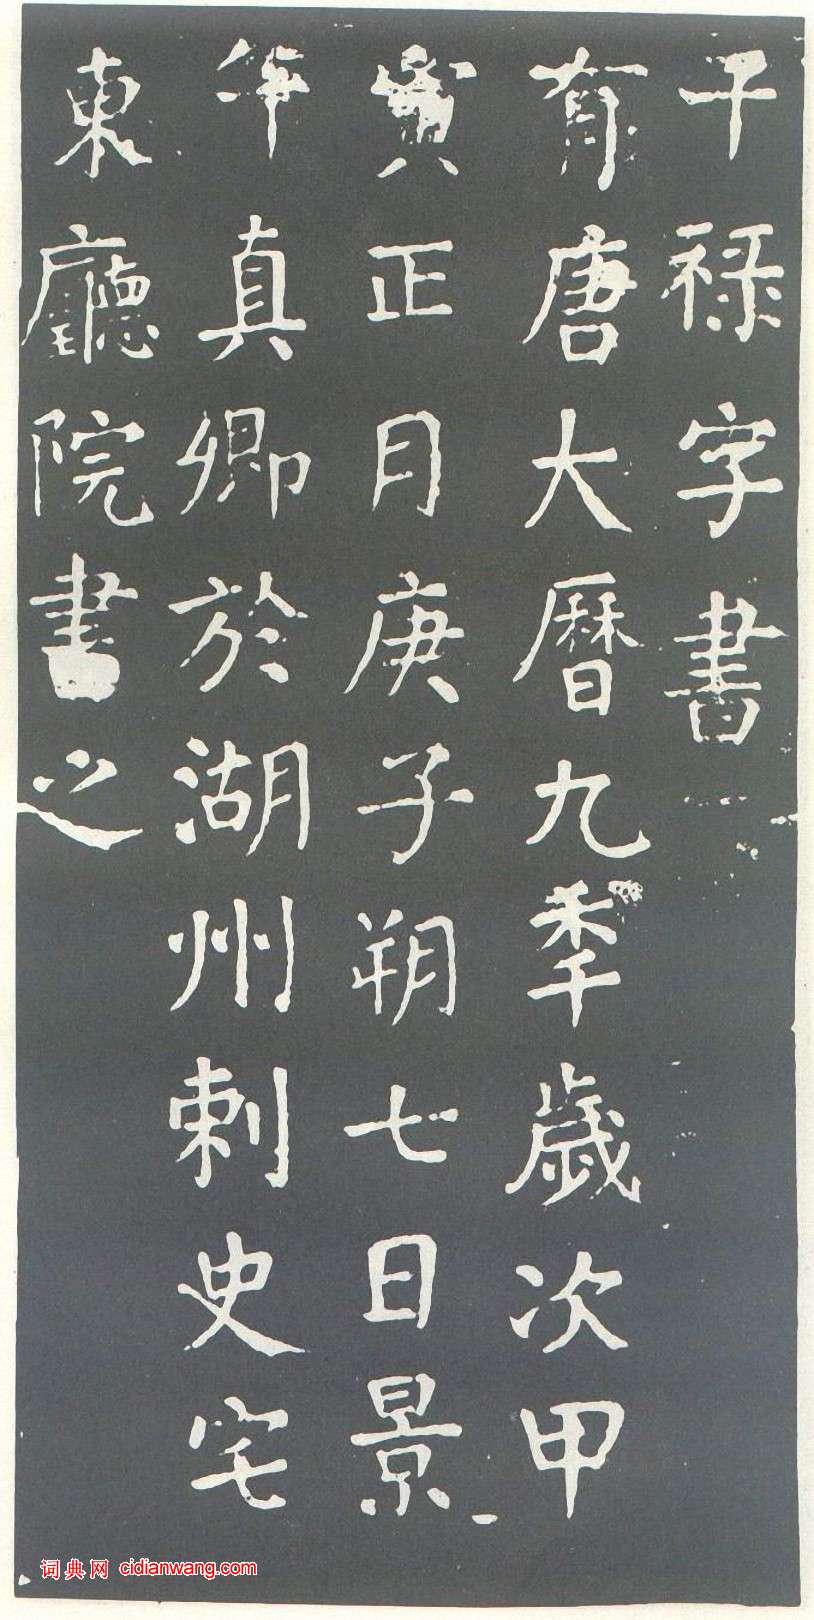 干禄字書
有唐大暦九秊歳次甲
寅正月庚子朔七日景
午真卿於湖州刺史宅
東廳院書之
词典网 cidianwang.com